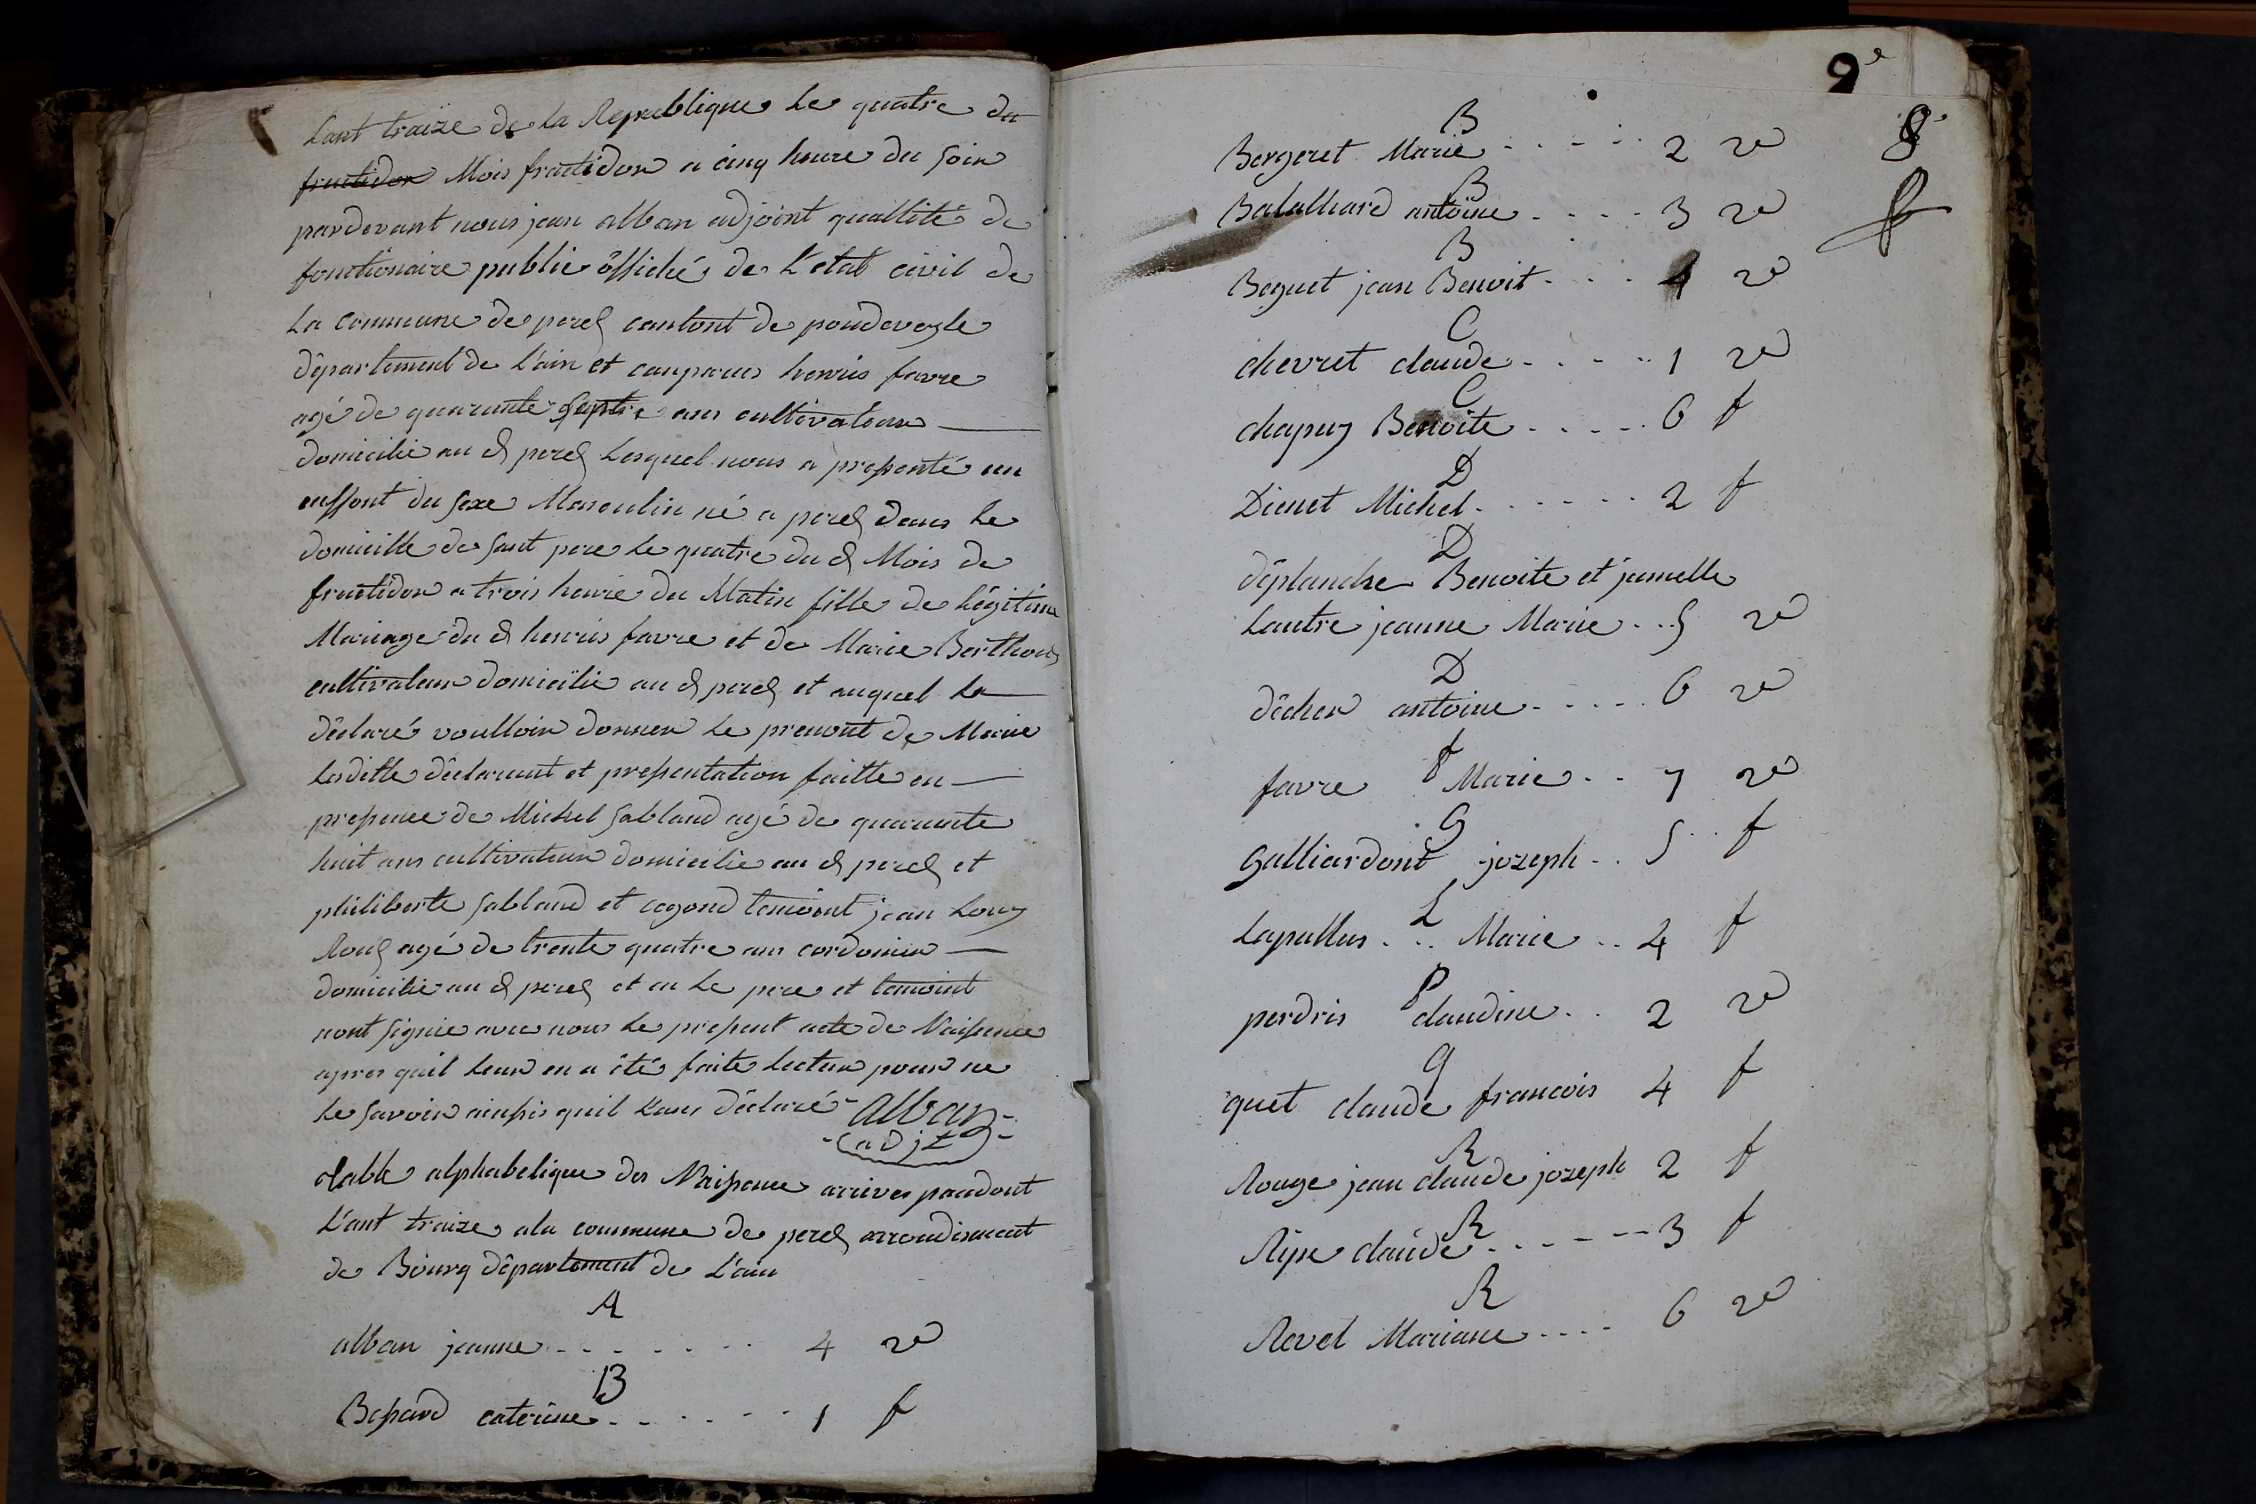 Lant traize de La Republique Le quatre du
fructidor Mois fructidor a cinq heure du soir
pardevant nous jean alban adjoint quallité de
fonctionaire public offiché de L'etat civil de
La commune de perex cantont de pondeveyle
département de L'ain et conparus henris favre
agé de quarante septe ans cultivateur
domicilie au d perex Lesquel nous a presenté un
enffont du sexe Masculin né a perex dans Le
domicille de sont pere Le quatre du d Mois de
fructidor a trois heure du Matin fille de Légitime
Mariage du d henris favre et de Marie Berthoux
cultivateur domicilie au d perex et auquel La
déclaré voulloir donner Le prenont de Marie
Laditte déclarant et presentation faitte en
presence de Michel sabland agé de quarante
huit ans cultivateur domicilie au d perex et
philiberte sabland et cegond temoint jean Louy
Roux agé de trente quatre ans cordonier
domicilie au d perex et on Le pere et temoint
nont signie avec nous Le present acte de Naissence
apres quil Leur en a été faite Lecture pour ne
Le savoir ainsis quil Lans déclaré alban
adjt
Table alphabetique des Naissence arrives pandont
L'ant traize a la commune de perex arrondisement
de Bourg département de L'ain
A
alban jeanne 4 ro
B
Besard caterine 1 f
9e
B
Bergeret Marie 2 ro
8
B
Balalliard antoine 3 ro
B
Beguet jean Benoit 4 ro
C
chevret claude 1 ro
C
chapuy Benoite 6 f
D
Dienet Michel 2 f
D
déplanche Benoite et jumelle
Lautre jeanne Marie 5 ro
D
décher antoine 6 ro
f
favre Marie 7 ro
G
galliardont jozeph 5 f
L
Lapallus Marie 4 f
P
perdris claudine 2 ro
q
quet claude francois 4 f
R
Rouge jean claude jozeph 2 f
R
claude 3 f
R
Revel Mariane 6 ro